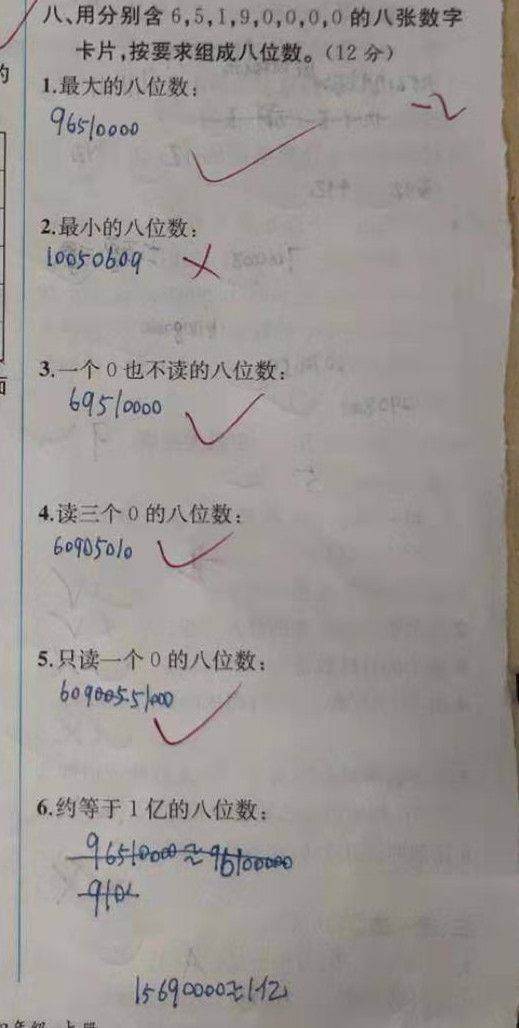 八、用分别含6,5,1,9,0,0,0,0的八张数字
卡片,按要求组成八位数。(12分)
1.最大的八位数:
-2
96510000
2.最小的八位数:
10050609
3.一个0也不读的八位数:
69510000
4.读三个0的八位数:
60905010
5.只读一个0的八位数:
6.约等于1亿的八位数:
96510000≈96100000
910
15690000≈1亿